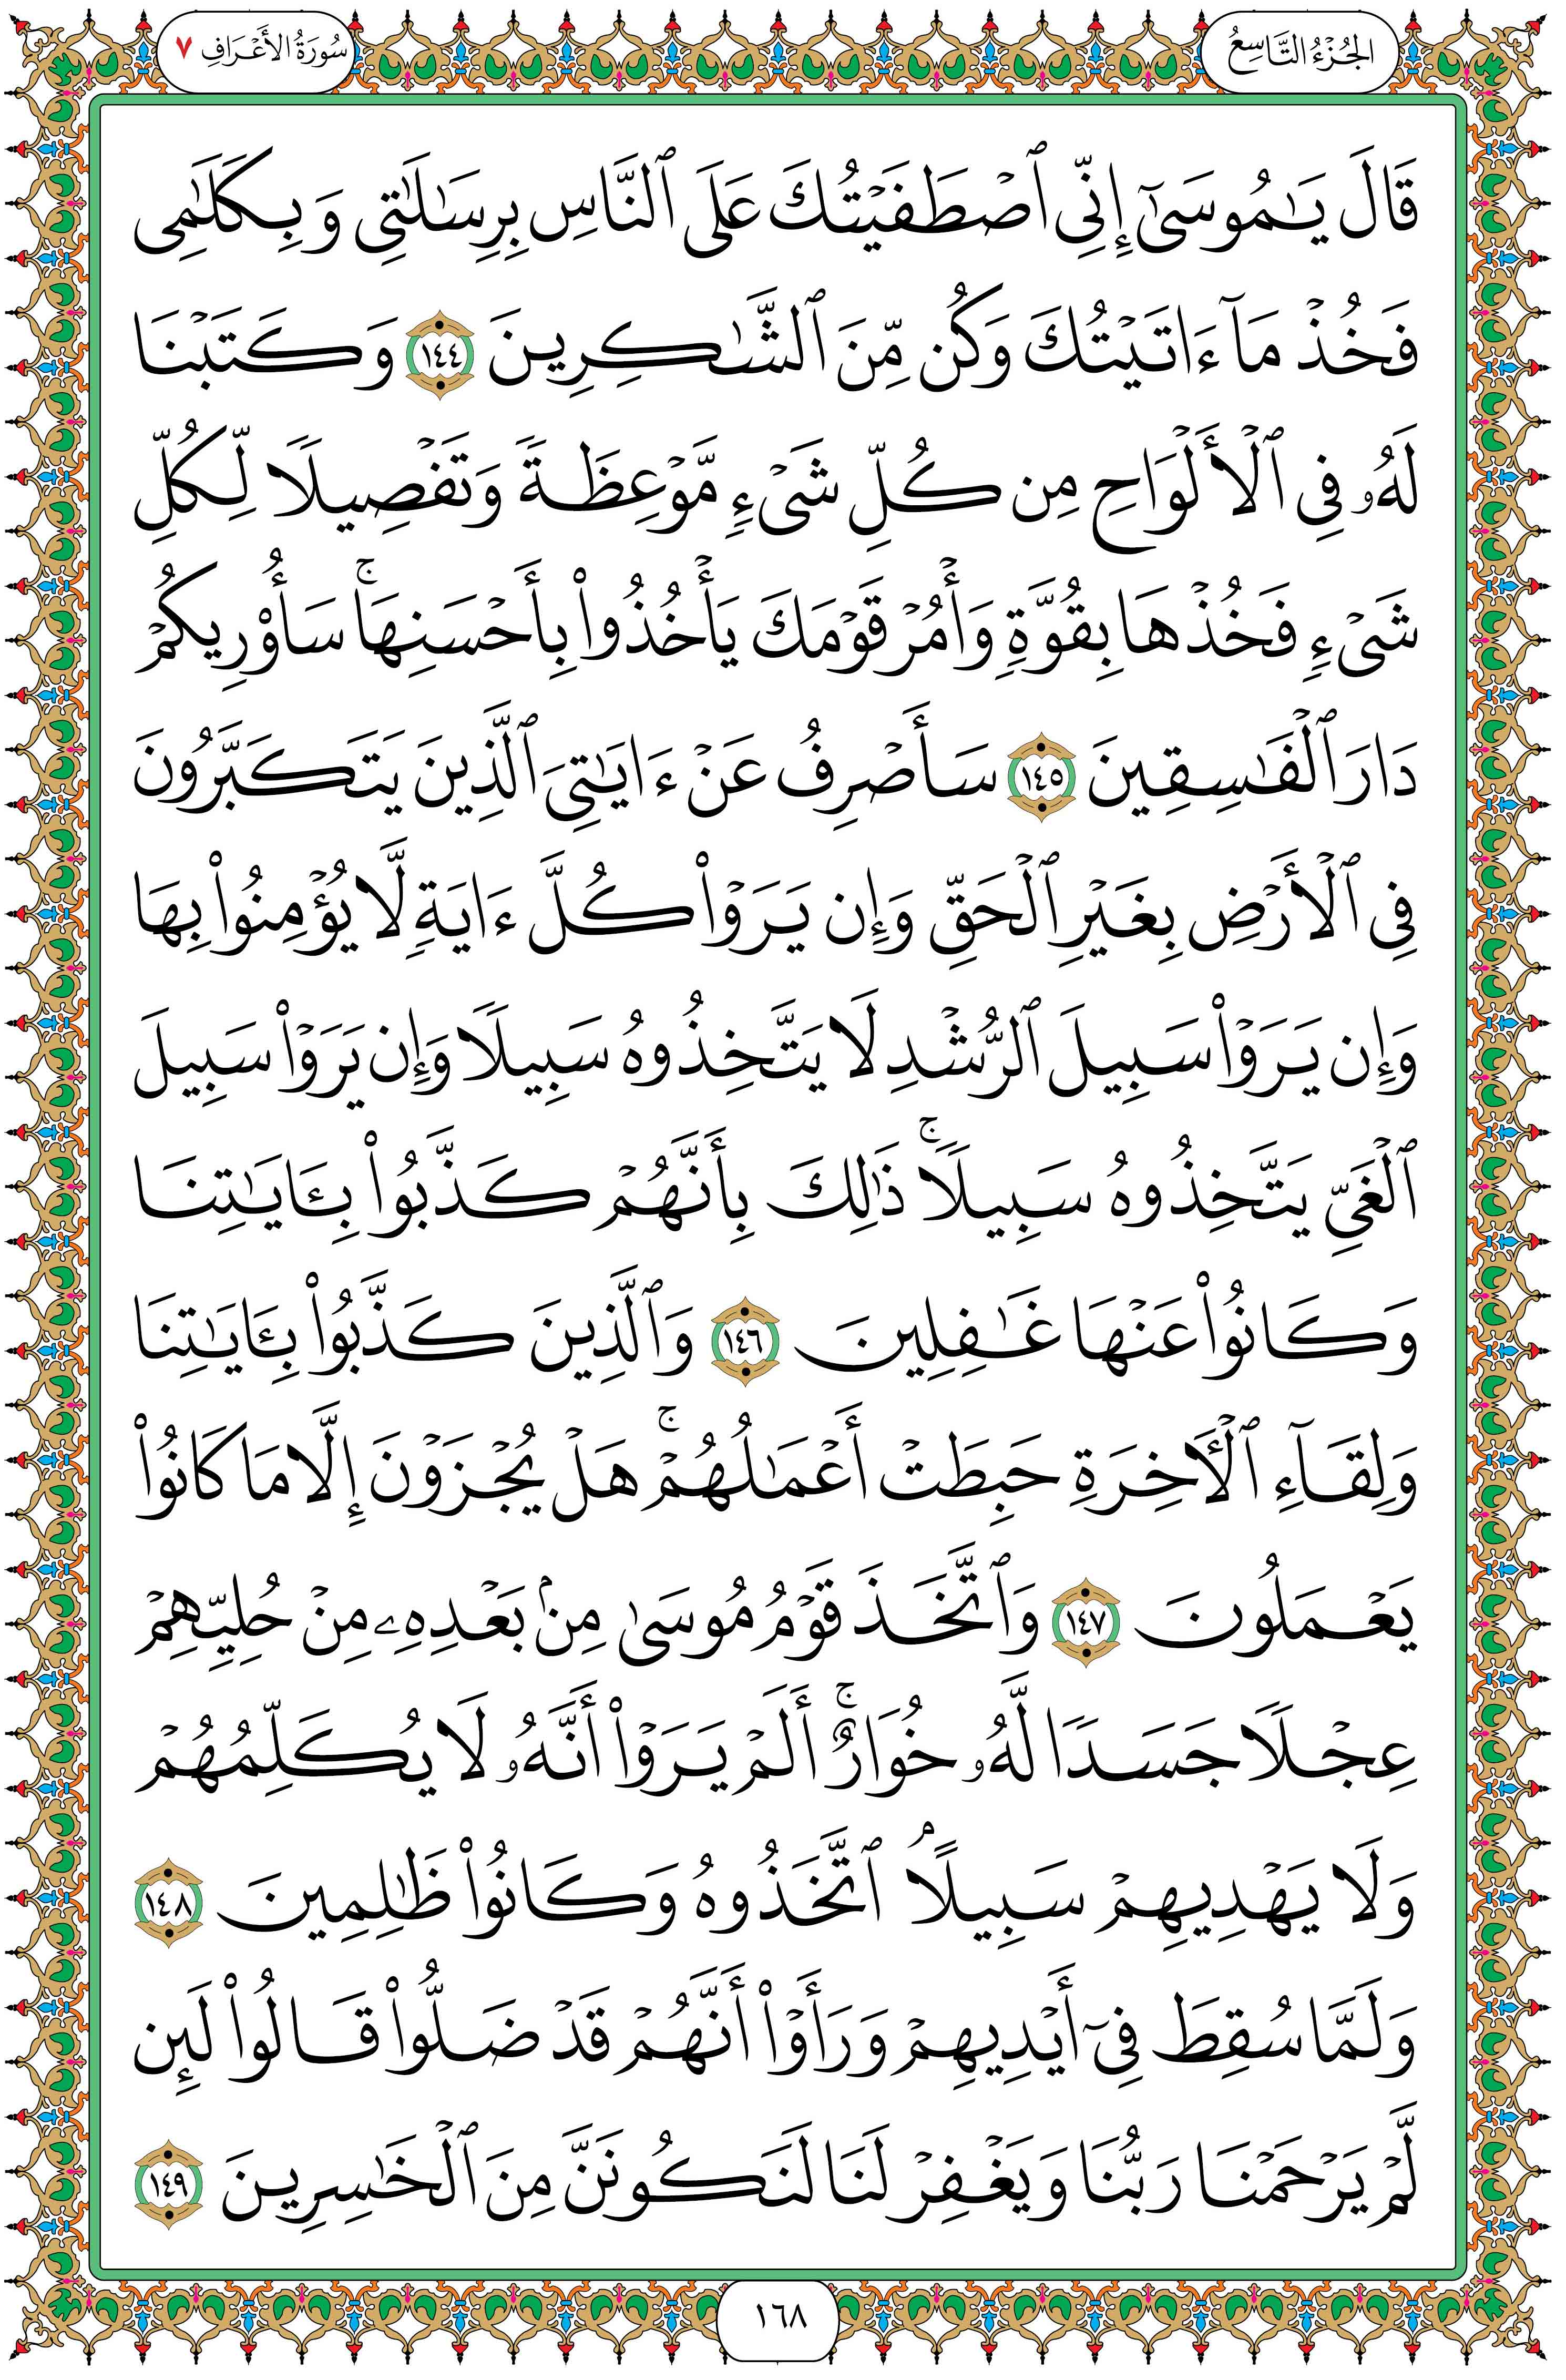 الجُزْءُ التَّاسِعُ
سُورَةُ الأَعْرَافِ ٧
قَالَ يَٰمُوسَىٰٓ إِنِّى ٱصْطَفَيْتُكَ عَلَى ٱلنَّاسِ بِرِسَٰلَٰتِى وَبِكَلَٰمِى
فَخُذْ مَآ ءَاتَيْتُكَ وَكُن مِّنَ ٱلشَّٰكِرِينَ ١٤٤ وَكَتَبْنَا
لَهُۥ فِى ٱلْأَلْوَاحِ مِن كُلِّ شَىْءٍ مَّوْعِظَةً وَتَفْصِيلًا لِّكُلِّ
شَىْءٍ فَخُذْهَا بِقُوَّةٍ وَأْمُرْ قَوْمَكَ يَأْخُذُوا۟ بِأَحْسَنِهَا ۚ سَأُو۟رِيكُمْ
دَارَ ٱلْفَٰسِقِينَ ١٤٥ سَأَصْرِفُ عَنْ ءَايَٰتِىَ ٱلَّذِينَ يَتَكَبَّرُونَ
فِى ٱلْأَرْضِ بِغَيْرِ ٱلْحَقِّ وَإِن يَرَوْا۟ كُلَّ ءَايَةٍ لَّا يُؤْمِنُوا۟ بِهَا
وَإِن يَرَوْا۟ سَبِيلَ ٱلرُّشْدِ لَا يَتَّخِذُوهُ سَبِيلًا وَإِن يَرَوْا۟ سَبِيلَ
ٱلْغَىِّ يَتَّخِذُوهُ سَبِيلًا ۚ ذَٰلِكَ بِأَنَّهُمْ كَذَّبُوا۟ بِـَٔايَٰتِنَا
وَكَانُوا۟ عَنْهَا غَٰفِلِينَ ١٤٦ وَٱلَّذِينَ كَذَّبُوا۟ بِـَٔايَٰتِنَا
وَلِقَآءِ ٱلْـَٔاخِرَةِ حَبِطَتْ أَعْمَٰلُهُمْ ۚ هَلْ يُجْزَوْنَ إِلَّا مَا كَانُوا۟
يَعْمَلُونَ ١٤٧ وَٱتَّخَذَ قَوْمُ مُوسَىٰ مِنۢ بَعْدِهِۦ مِنْ حُلِيِّهِمْ
عِجْلًا جَسَدًا لَّهُۥ خُوَارٌ ۚ أَلَمْ يَرَوْا۟ أَنَّهُۥ لَا يُكَلِّمُهُمْ
وَلَا يَهْدِيهِمْ سَبِيلًا ۘ ٱتَّخَذُوهُ وَكَانُوا۟ ظَٰلِمِينَ ١٤٨
وَلَمَّا سُقِطَ فِىٓ أَيْدِيهِمْ وَرَأَوْا۟ أَنَّهُمْ قَدْ ضَلُّوا۟ قَالُوا۟ لَئِن
لَّمْ يَرْحَمْنَا رَبُّنَا وَيَغْفِرْ لَنَا لَنَكُونَنَّ مِنَ ٱلْخَٰسِرِينَ ١٤٩
١٦٨